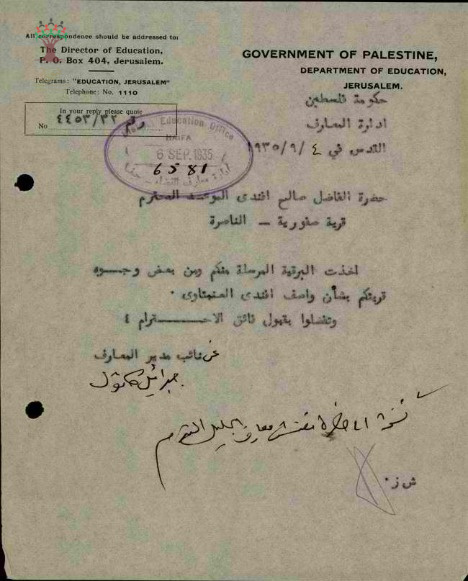 All correspondence should be addressed to:
The Director of Education,
P. O. Box 404, Jerusalem.
Telegrams: "EDUCATION, JERUSALEM"
Telephone: No. 1110
In your reply please quote
No رقم ٤٤٥٣/٣٢
GOVERNMENT OF PALESTINE,
DEPARTMENT OF EDUCATION,
JERUSALEM.
Education Office
HAIFA
6 SEP. 1935
6581
حكومة فلسطين
ادارة المعارف
القدس في ٤ /٩/ ١٩٣٥
حضرة الفاضل صالح افندى المحترم
قرية صفورية – الناصرة
اخذت البرقية المرسلة منكم ومن بعض وجوه
قريتكم بشأن واصف افندى
وتفضلوا بقبول فائق الاحترام ٤
عن نائب مدير المعارف
جبرائيل كاتول
نسخة الى حضرة مفتش معارف الجليل المحترم
ش ز٠